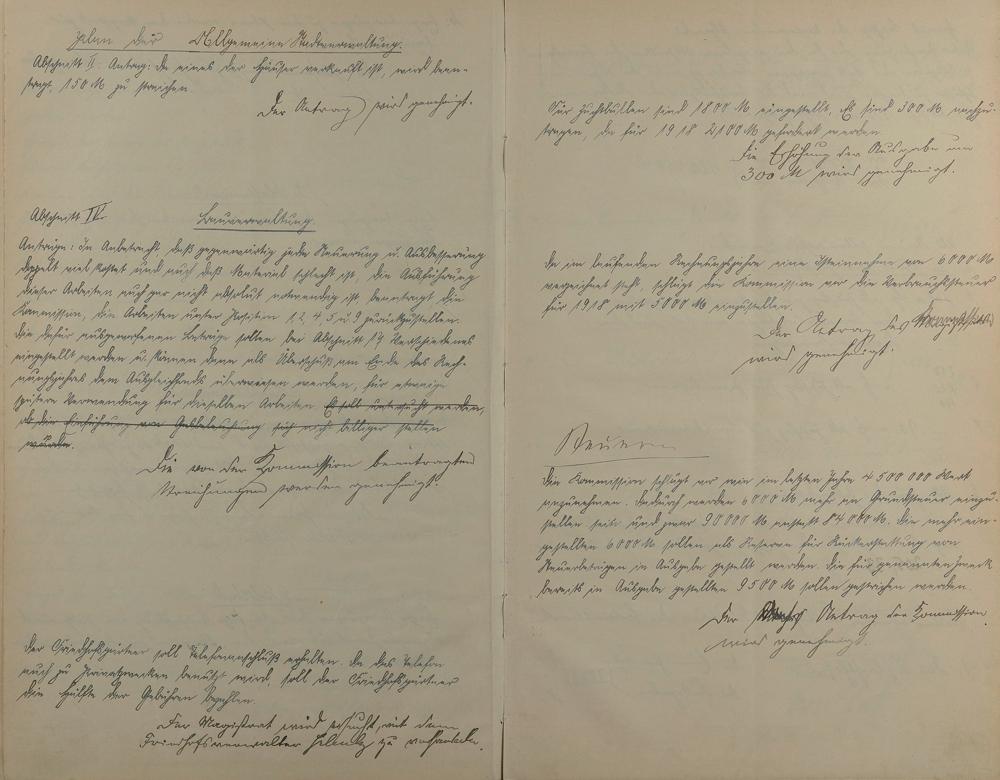 Plan der Allgemeine Stadtverwaltung.
Abschnitt II: Antrag: Da eines der Häuser verkauft ist, wird bean-
tragt, 150 M zu streichen
Der Antrag wird genehmigt.
Abschnitt IV. Bauverwaltung.
Anträge: In Anbetracht, daß gegenwärtig jede Neuerung u. Ausbesserung
doppelt viel kostet und auch das Material schlecht ist, die Ausführung
dieser Arbeiten auch gar nicht absolut notwendig ist, beantragt die
Kommission, die Arbeiten unter Position 1, 2, 4, 5, u. 9 zurückzustellen.
Die dafür ausgeworfenen Beträge sollen bei Abschnitt 14 Verschiedenes
eingestellt werden u. können dann als Überschuß am Ende des Rech-
nungsjahres dem Ausgleichfonds überwiesen werden, für etwaige
spätere Verwendung für dieselben Arbeiten Es soll untersucht werden,
ob die Einführung von Gasbeleuchtung sich nicht billiger stellen
würde.
Die von der Kommission beantragten
Streichungen werden genehmigt.
Der Friedhofsgärtner soll Telefonanschluß erhalten. Da das Telefon
auch zu Privatzwecken benutzt wird, soll der Friedhofsgärtner
die Hälfte der Gebühren bezahlen.
Der Magistrat wird ersucht, mit dem
Friedhofsverwalter zu verhandeln.
Für Zuchtbullen sind 1800 M. eingestellt. Es sind 300 M. nachzu-
tragen, da für 1918 2100 M gefordert werden.
Die Erhöhung der Ausgabe um
300 M wird genehmigt.
Da im laufenden Rechnungsjahre eine Isteinnahme von 6000 M
verzeichnet steht, schlägt die Kommission vor die Verbrauchssteuer
für 1918 mit 5000 M einzustellen.
Der Antrag der
wird genehmigt.
Steuern
Die Kommission schlägt vor wie im letzten Jahre 4 500 000 Wert
anzunehmen. Dadurch werden 6000 M mehr an Grundsteuer einzu-
stellen sein und zwar 90 000 M anstatt 84 000 M. Die mehr ein-
gestellten 6000 M sollen als Reserve für Rückerstattung von
Steuerbeträgen in Ausgabe gestellt werden. Die für genannten Zweck
bereits in Ausgabe gestellten 9500 M sollen gestrichen werden.
Der Antrag der Kommission
wird genehmigt.